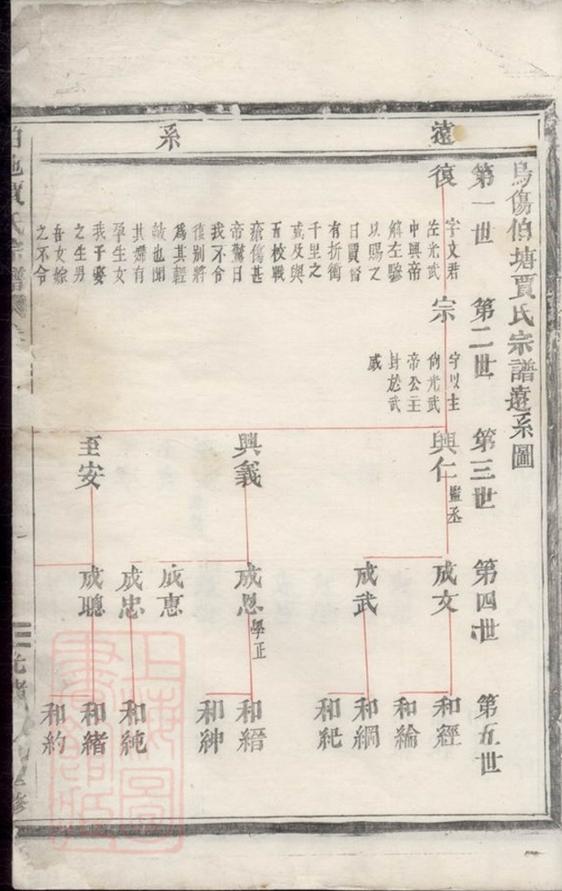 遠系
烏傷伯塘賈氏宗譜遠系圖
第一世
第二世
第三世
第四世
第五世
復
字文君
佐光武
中興帝
解左驂
以賜之
曰賈督
有折衝
千里之
威及與
五校戰
瘡傷甚
帝驚曰
我不令
復別將
為其輕
敵也聞
其婦有
孕生女
我子娶
之生男
吾女嫁
之不令
宗
字以主
尙光武
帝公主
封於武
威
興仁 監丞
興義
至安
成文
成武
成恩 學正
成惠
成忠
成聰
和經
和綸
和綱
和紀
和縉
和紳
和純
和緒
和約
賈氏宗譜
光緒
上海圖書館藏